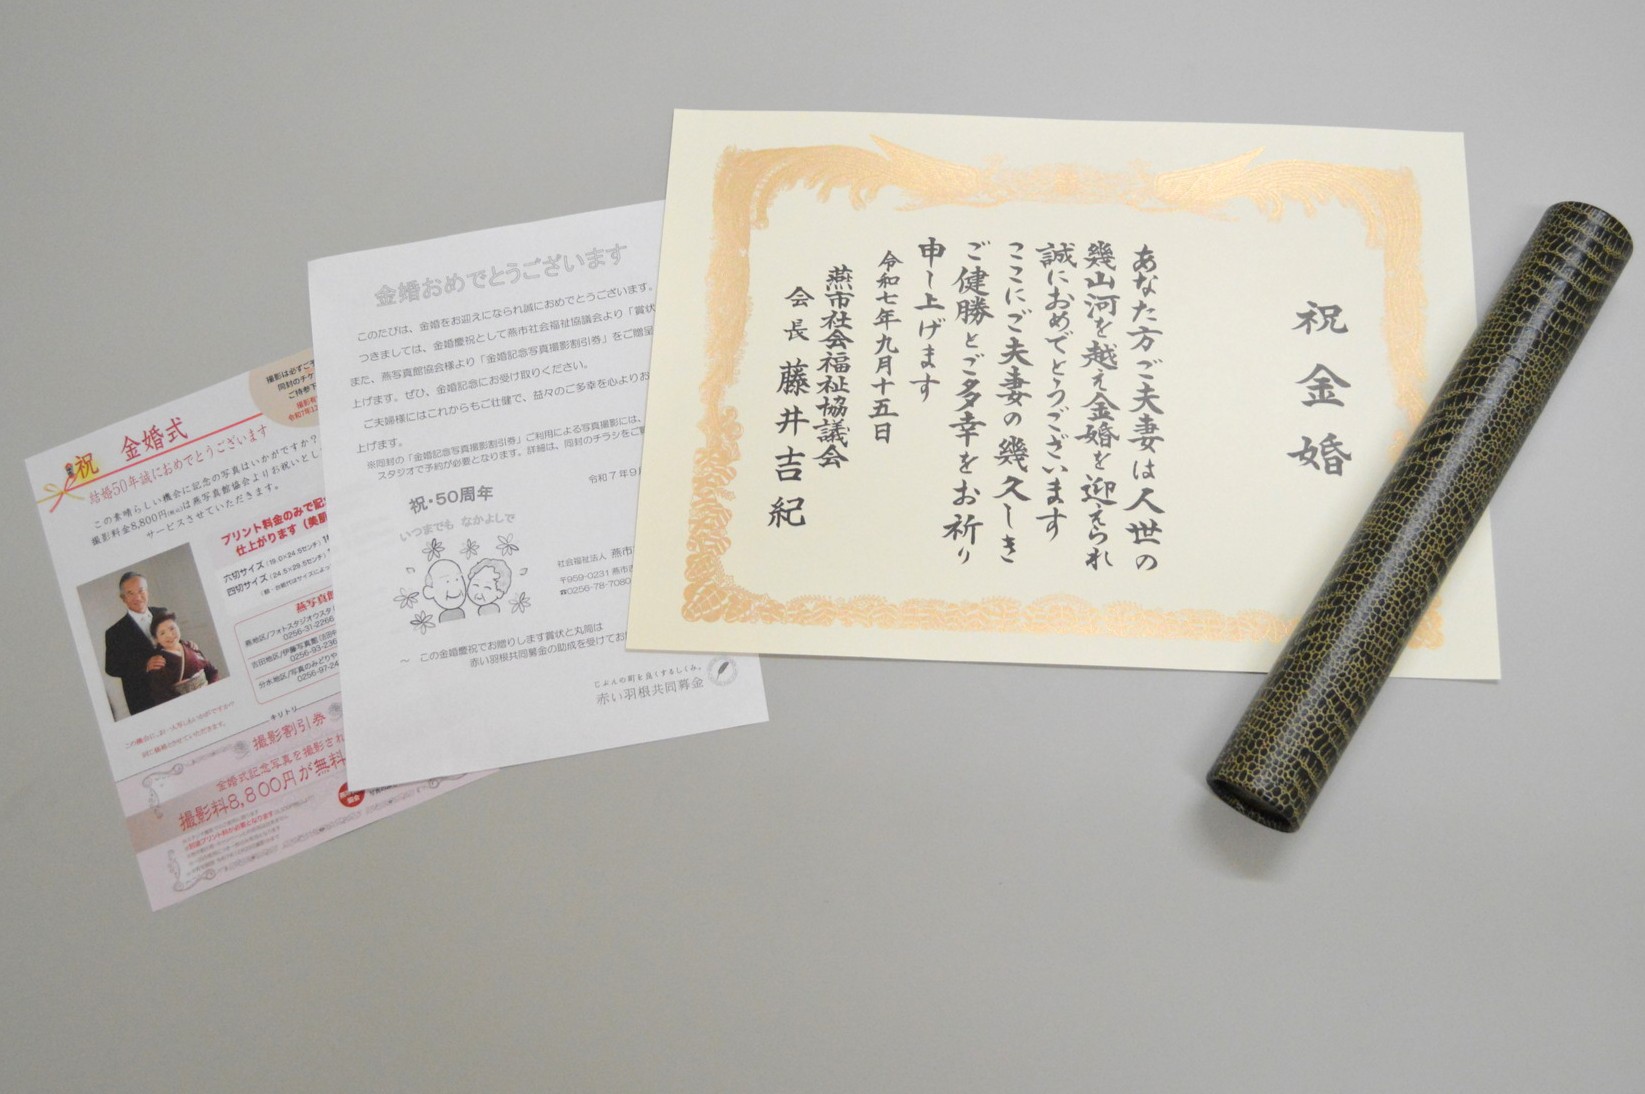 祝金婚
あなた方ご夫妻は人世の
幾山河を越え金婚を迎えられ
誠におめでとうございます
ここにご夫妻の幾久しき
ご健勝とご多幸をお祈り
申し上げます
令和七年九月十五日
燕市社会福祉協議会
会長 藤井吉紀
金婚おめでとうございます
このたびは、金婚をお迎えになられ誠におめでとうございます。
つきましては、金婚慶祝として燕市社会福祉協議会より「賞状
また、燕写真館協会様より「金婚記念写真撮影割引券」をご贈呈
上げます。ぜひ、金婚記念にお受け取りください。
ご夫婦様にはこれからもご壮健で、益々のご多幸を心よりお
上げます。
※同封の「金婚記念写真撮影割引券」ご利用による写真撮影には、
スタジオで予約が必要となります。詳細は、同封のチラシをご
令和7年9
祝・50周年
いつまでも なかよしで
社会福祉法人 燕市
〒959-0231 燕市
☎0256-78-7080
～ この金婚慶祝でお贈りします賞状と丸筒は
赤い羽根共同募金の助成を受けてお
じぶんの町を良くするしくみ。
赤い羽根共同募金
撮影は必ずご
同封のチケ
ご持参下
祝 金婚式
結婚50年誠におめでとうございます
この素晴らしい機会に記念の写真はいかがですか？
撮影料金8,800円(税込)は燕写真館協会よりお祝いとし
サービスさせていただきます。
プリント料金のみで記
仕上がります（美肌
六切サイズ(19.0×24.5センチ)
四切サイズ(24.5×29.5センチ)
燕写真館
燕地区/フォトスタジオウスタ
0256-31-2266
吉田地区/伊藤写真館
0256-93-236
分水地区/写真のみどりや
0256-97-24
キリトリ
撮影割引券
金婚式記念写真を撮影され
撮影料8,800円が無料
※別途プリント料が必要となります